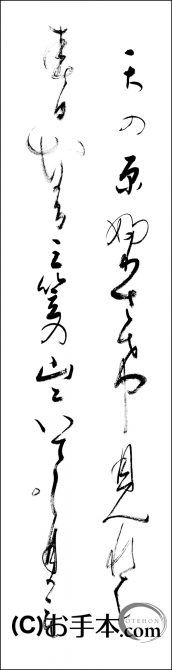 天の原ふりさけ見れば
春日なる三笠の山にいでし月かも
(C)お手本.com
OTEHON